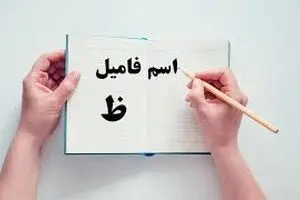 اسم فامیل
ظ